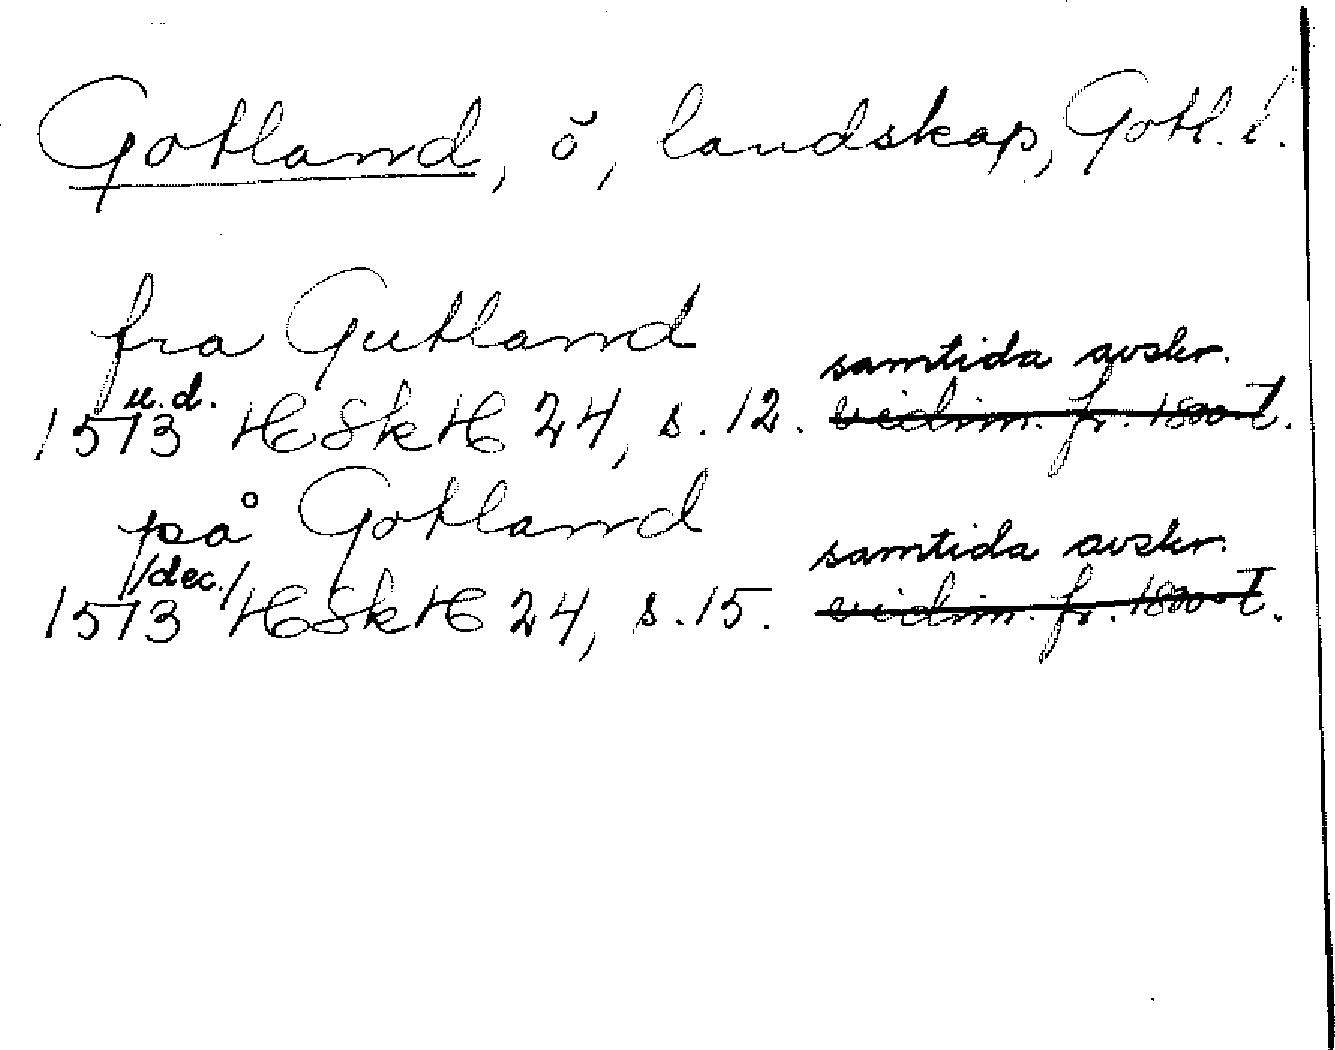 Gotland, ö, landskap, Gotl. l.
fra Gutland
samtida avskr.
u.d.
1573 HSkH 24, s. 12. vidim. fr. 1800-t.
på Gotland
samtida avskr.
/dec./
1573 HSkH 24, s. 15. vidim. fr. 1800-t.